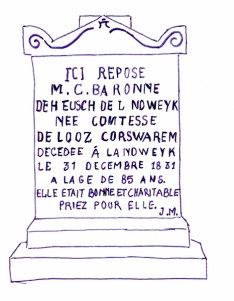 ICI REPOSE
M. C. BARONNE
DE HEUSCH DE L NDWEYK
NEE COMTESSE
DE LOOZ CORSWAREM
DECEDEE A LANDWEYK
LE 31 DECEMBRE 1831
A LAGE DE 85 ANS.
ELLE ETAIT BONNE ET CHARITABLE
PRIEZ POUR ELLE.
J.M.